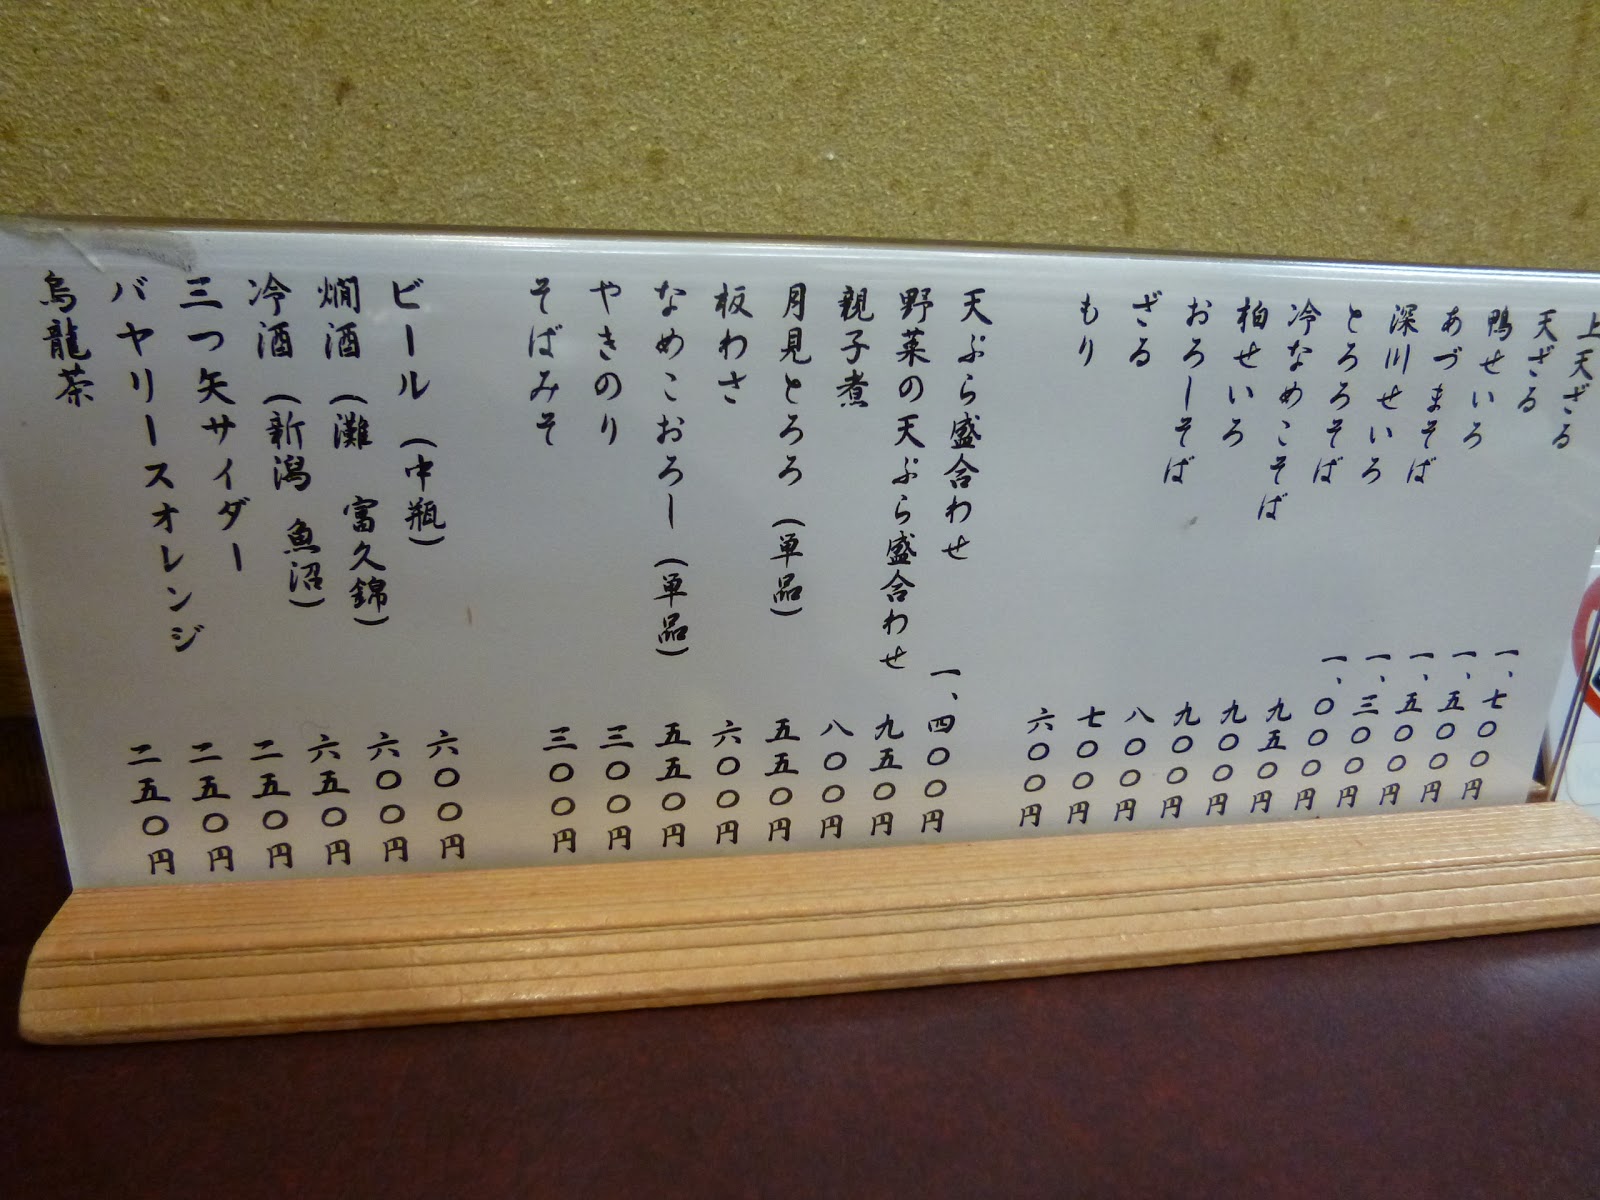 上天ざる 一、七〇〇円
天ざる 一、五〇〇円
鴨せいろ 一、五〇〇円
あづまそば 一、三〇〇円
深川せいろ 一、〇〇〇円
とろろそば 九五〇円
冷なめこそば 九〇〇円
柏せいろ 九〇〇円
おろしそば 八〇〇円
ざる 七〇〇円
もり 六〇〇円
天ぷら盛合わせ 一、四〇〇円
野菜の天ぷら盛合わせ 九五〇円
親子煮 八〇〇円
月見とろろ（単品） 五五〇円
板わさ 六〇〇円
なめこおろし（単品） 五五〇円
やきのり 三〇〇円
そばみそ 三〇〇円
ビール（中瓶） 六〇〇円
燗酒（灘 富久錦） 六〇〇円
冷酒（新潟 魚沼） 六五〇円
三つ矢サイダー 二五〇円
バヤリースオレンジ 二五〇円
烏龍茶 二五〇円